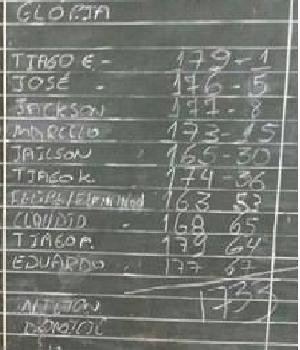 GLORIA
TIAGO E - 179 - 1
JOSÉ - 176 - 5
JACKSON 177 - 8
MARCELO 173 - 15
JAILSON 165 - 30
TIAGO K. 174 - 36
163 53
CLAUDIO - 168 65
TIAGO A. 179 64
EDUARDO 177 67
1733